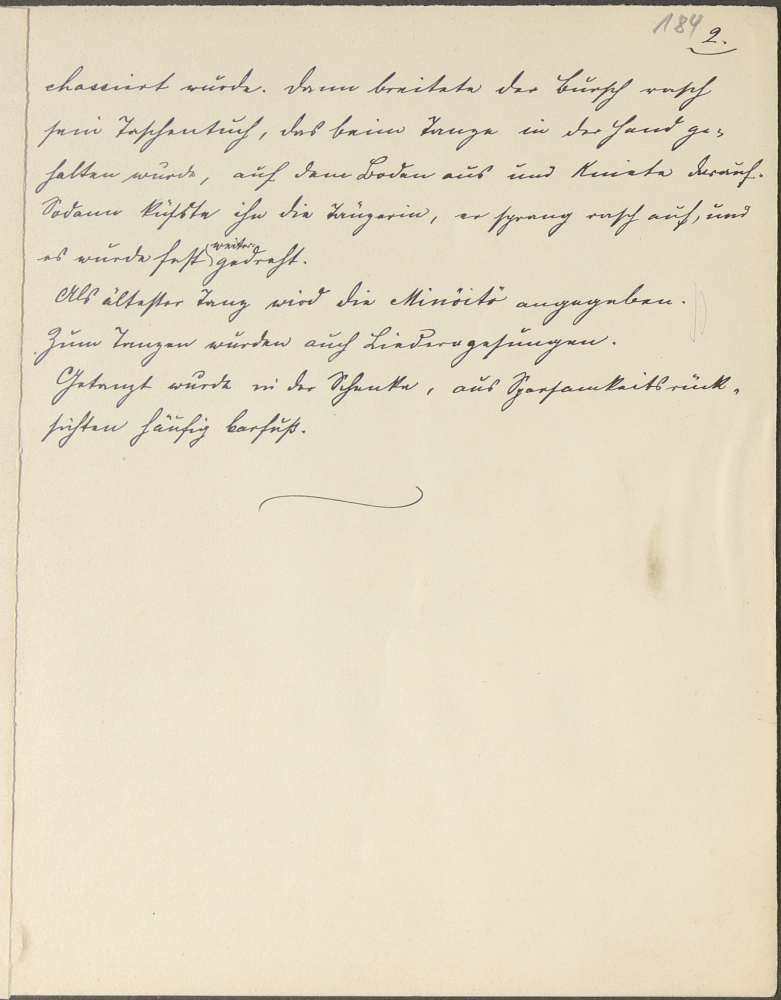 184
2.
chassiert wurde. Dann breitete der Bursch rasch
sein Taschentuch, das beim Tanze in der Hand ge-
halten wurde, auf dem Boden aus und kniete darauf.
Sodann küßte ihn die Tänzerin, er sprang rasch auf, und
es wurde fest weiter gedreht.
Als ältester Tanz wird die Minöitö angegeben.
Zum Tanzen wurden auch Lieder gesungen.
Getanzt wurde in der Schenke, aus Sparsamkeitsrück-
sichten häufig barfuß.